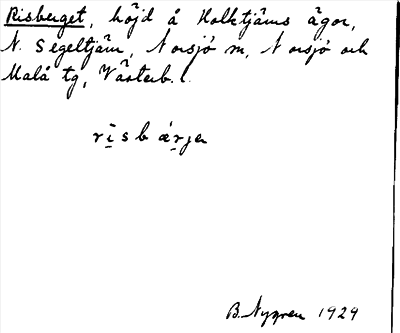 Risberget, höjd å Holktjärns ägor,
N. Segeltjärn, Norsjö sn, Norsjö och
Malå tg, Västerb. l.
risbärjen
B. Nygren 1929